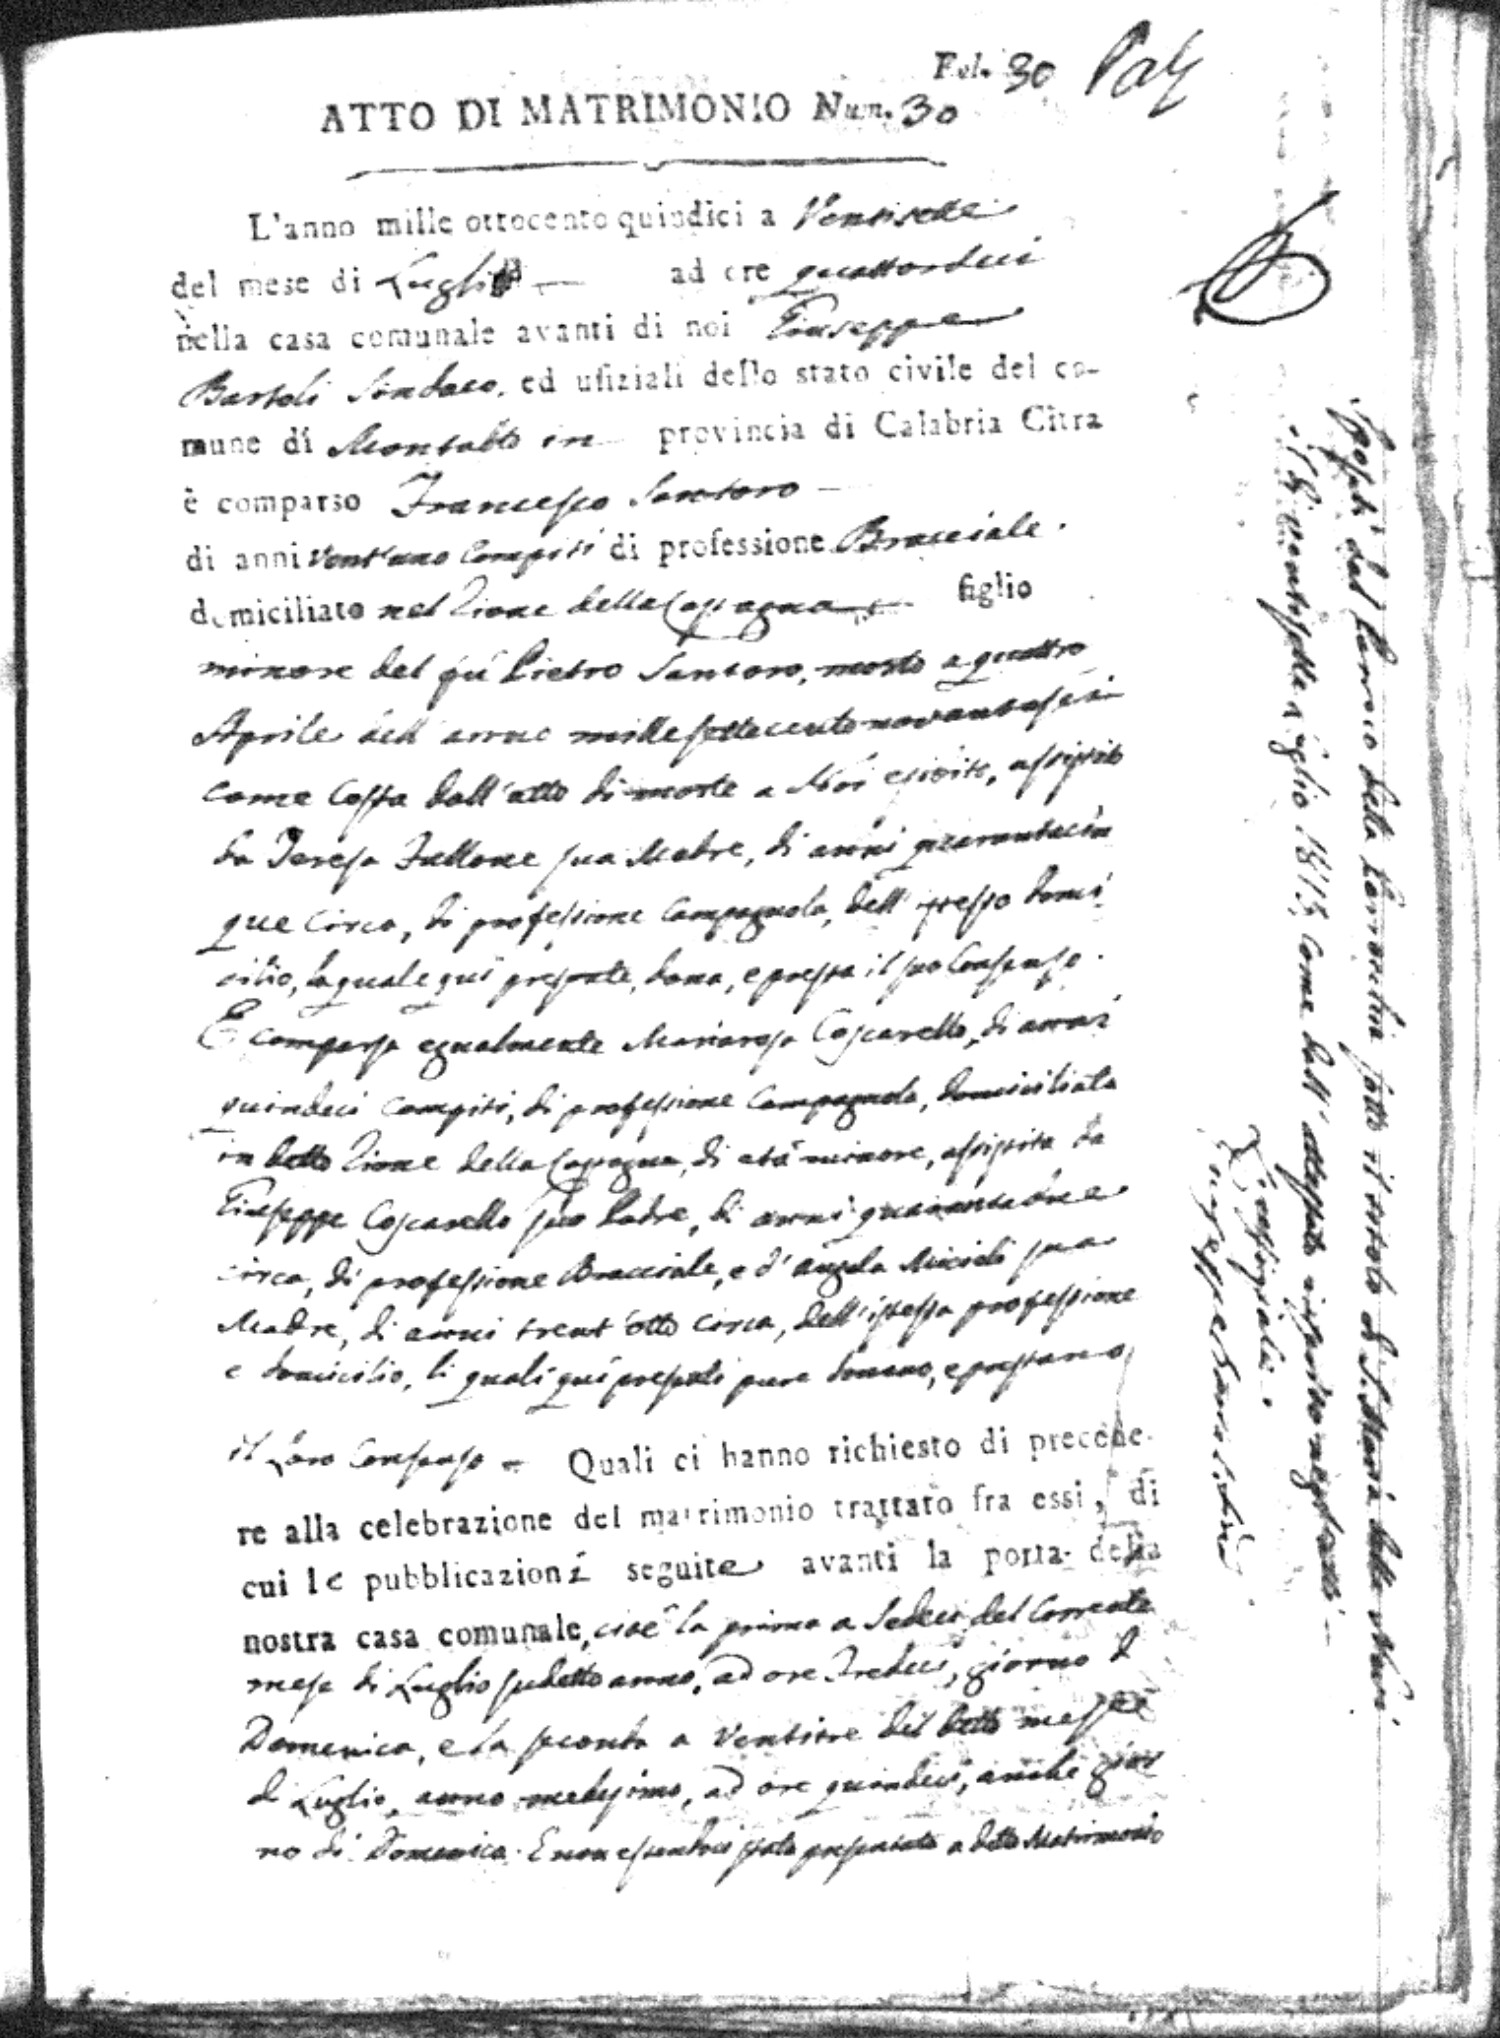 Fol. 30
ATTO DI MATRIMONIO Num. 30
L'anno mille ottocento quindici a Ventisette
del mese di Luglio ad ore quattordeci
nella casa comunale avanti di noi Giuseppe
Bartoli Sindaco, ed ufiziali dello stato civile del co-
mune di Montalto in provincia di Calabria Citra
è comparso Francesco Santoro
di anni vent'uno compiti di professione Bracciale.
domiciliato nel Rione della figlio
minore del fu Pietro Santoro, morto a quattro
Aprile dell'anno mille settecento novantasei
come costa dall'atto di morte a Noi esibito, assistito
da Teresa Fallone sua Madre, di anni quarantacin
que circa, di professione Campagnola, dell'istesso domi
cilio, la quale quì presente, dona, e presta il suo Consenso.
È comparsa egualmente Mariarosa Coscarello, di anni
quindeci compiti, di professione Campagnola, domiciliata
in detto Rione della di età minore, assistita da
Giuseppe Coscarello suo Padre, di anni quarantadue
circa, di professione Bracciale, e d'Angela sua
Madre, di anni trent'otto circa, dell'istessa professione
e domicilio, li quali quì presenti pure donano, e prestano
il loro Consenso Quali ci hanno richiesto di procede-
re alla celebrazione del matrimonio trattato fra essi, di
cui le pubblicazioni seguite avanti la porta della
nostra casa comunale, cioè la prima a Sedeci del Corrente
mese di Luglio sudetto anno, ad ore Tredeci, giorno di
Domenica, e la seconda a Ventitre del detto mese
di Luglio, anno medesimo, ad ore quindeci, anche gior
no di Domenica. E non essendoci stata presentata a detto Matrimonio
Sposati dal Parroco della Parrocchia sotto il titolo di S. Maria della
li ventisette Luglio 1815, come dall'attestato
Giuseppe Bartoli Sind.